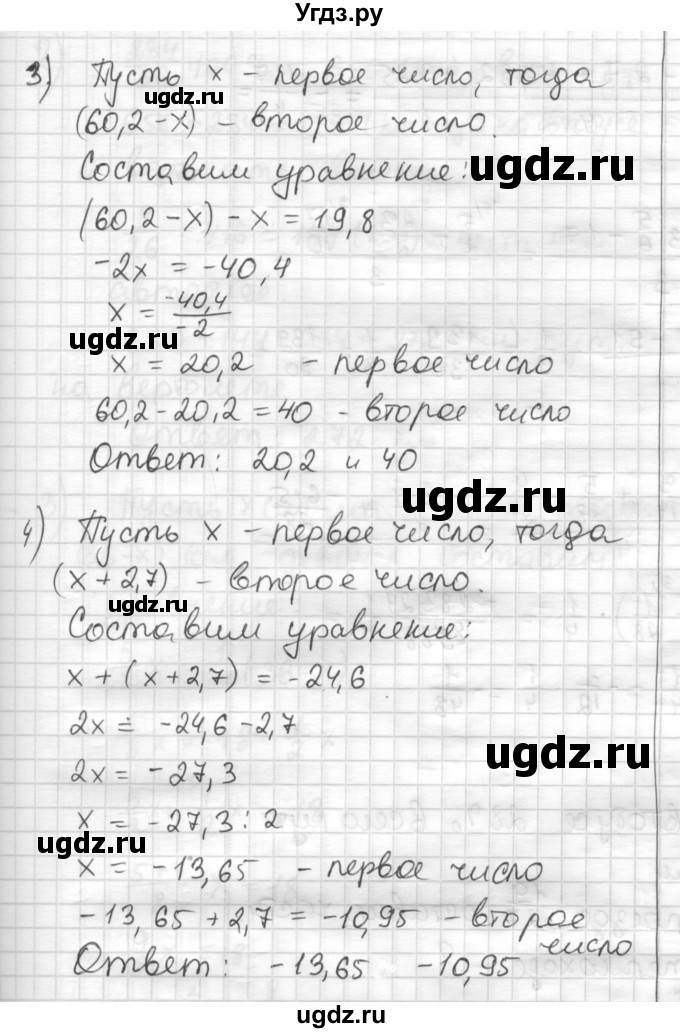 Угдз.ру
3) Пусть x – первое число, тогда
ugdz.ru
(60,2 - x) – второе число.
ugdz.ru
Составим уравнение:
(60,2 - x) - x = 19,8
-2x = -40,4
x = -40,4 / -2
ugdz.ru
x = 20,2 - первое число
60,2 - 20,2 = 40 - второе число
Ответ: 20,2 и 40
ugdz.ru
4) Пусть x – первое число, тогда
(x + 2,7) – второе число.
ugdz.ru
Составим уравнение:
x + (x + 2,7) = -24,6
2x = -24,6 - 2,7
ugdz.ru
2x = -27,3
x = -27,3 : 2
ugdz.ru
x = -13,65 - первое число
-13,65 + 2,7 = -10,95 - второе
число
Ответ: -13,65 -10,95
ugdz.ru